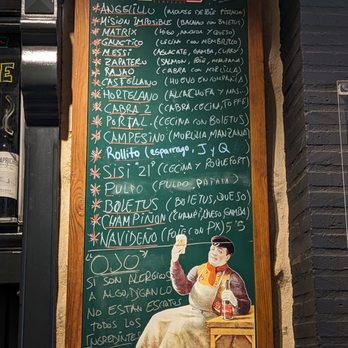 ANGELILLO
MISION IMPOSIBLE (BACALAO CON BOLETUS)
MATRIX (HIGO, ANCHOA Y QUESO)
GALACTICO (CECINA CON MEMBRILLO)
MESSI (AGUACATE, GAMBA, CURRY)
ZAPATERO (SALMON, PIÑA, MANZANA)
RAJAO (CABRA CON MORCILLA)
CASTELLANO (HUEVO EN
HORTELANO (ALCACHOFA Y MAS...
CABRA 2 (CABRA, CECIN, TOFFE
PORTAL. (CECINA CON BOLETUS)
CAMPESINO (MORCILLA, MANZANA)
Rollito (esparrago, J y Q)
SISI "21" (CECINA Y ROQUEFORT)
PULPO (PULPO, PATATA)
BOLETUS (BOLETUS, QUESO)
CHAMPIÑON (CHAMPI, QUESO, GAMBA)
NAVIDEÑO (FOIE CON PX) 5'5
"OJO"
SI SON ALERGIOS
A ALGO, DIGANLO
NO ESTAN ESCRITOS
TODOS LOS
INGREDIENTES